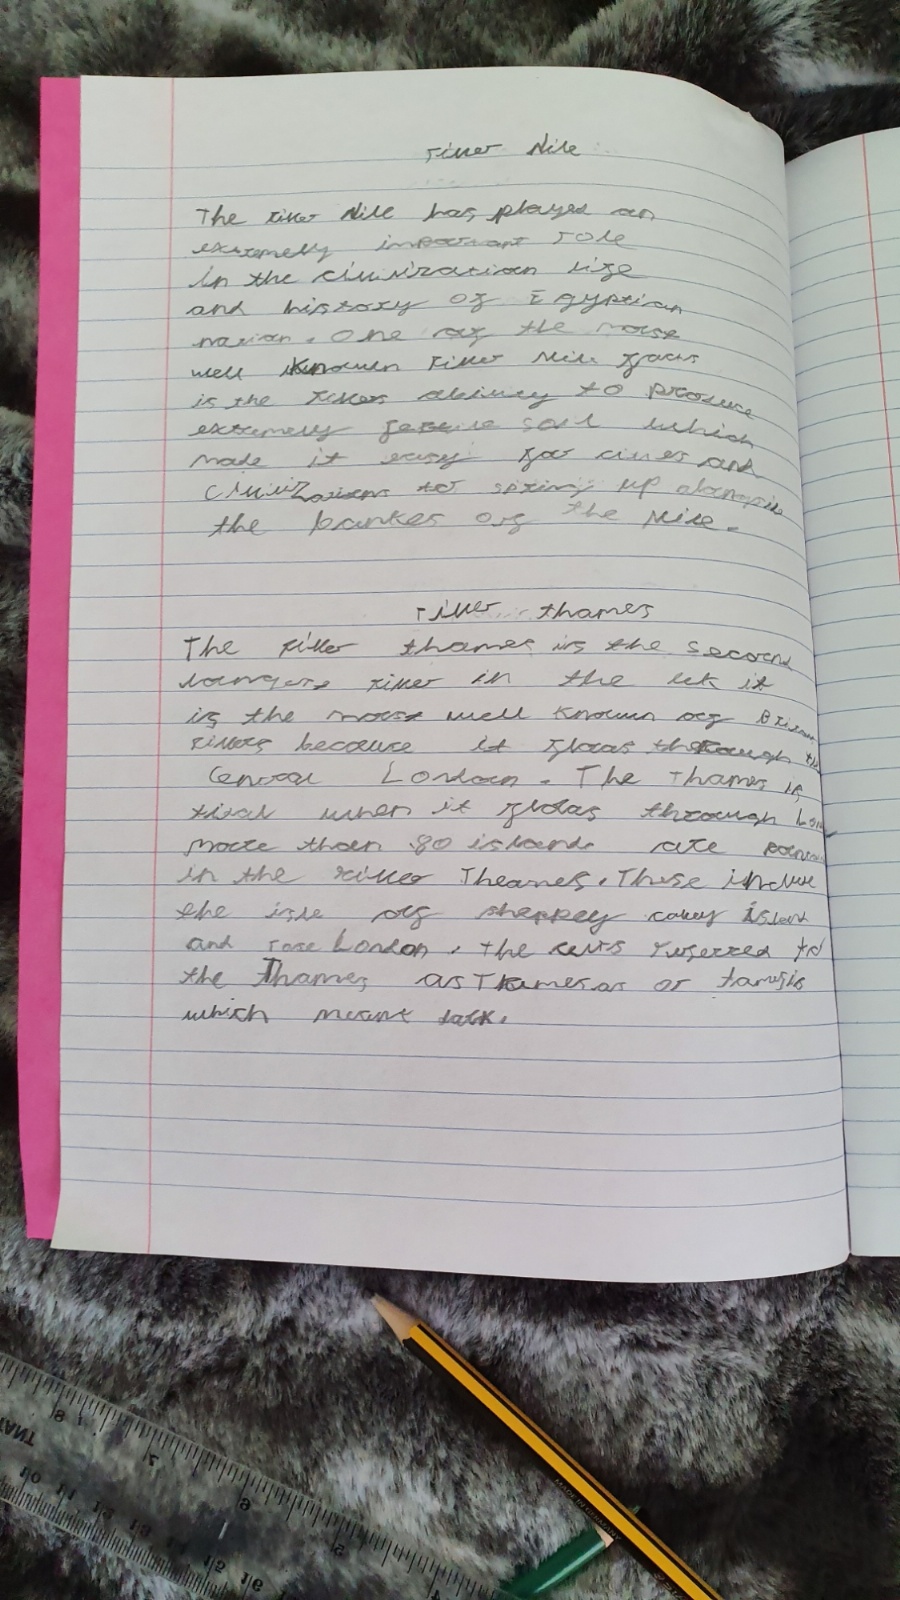 river Nile
The river Nile has played an
extremely important role
in the civilization life
and history of Egyptian
nation. One of the most
well known river Nile facts
is the rivers ability to produce
extremely fertile soil which
made it easy for cities and
civilizations to spring up alongside
the bankes of the Nile.
river thames
The river thames is the second
longest river in the uk it
is the most well known of
rivers because it flows through the
Central London. The Thames is
tidal when it flows through
More than 80 islands are
in the river Thames. These include
the isle of sheppey canvey island
and London. The referred to
the Thames as or tamesis
which meant dark.
MADE IN GERMANY